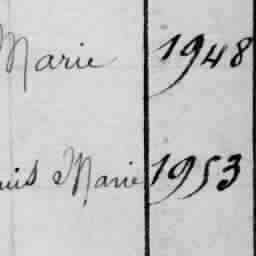 Marie 1948
Marie 1953